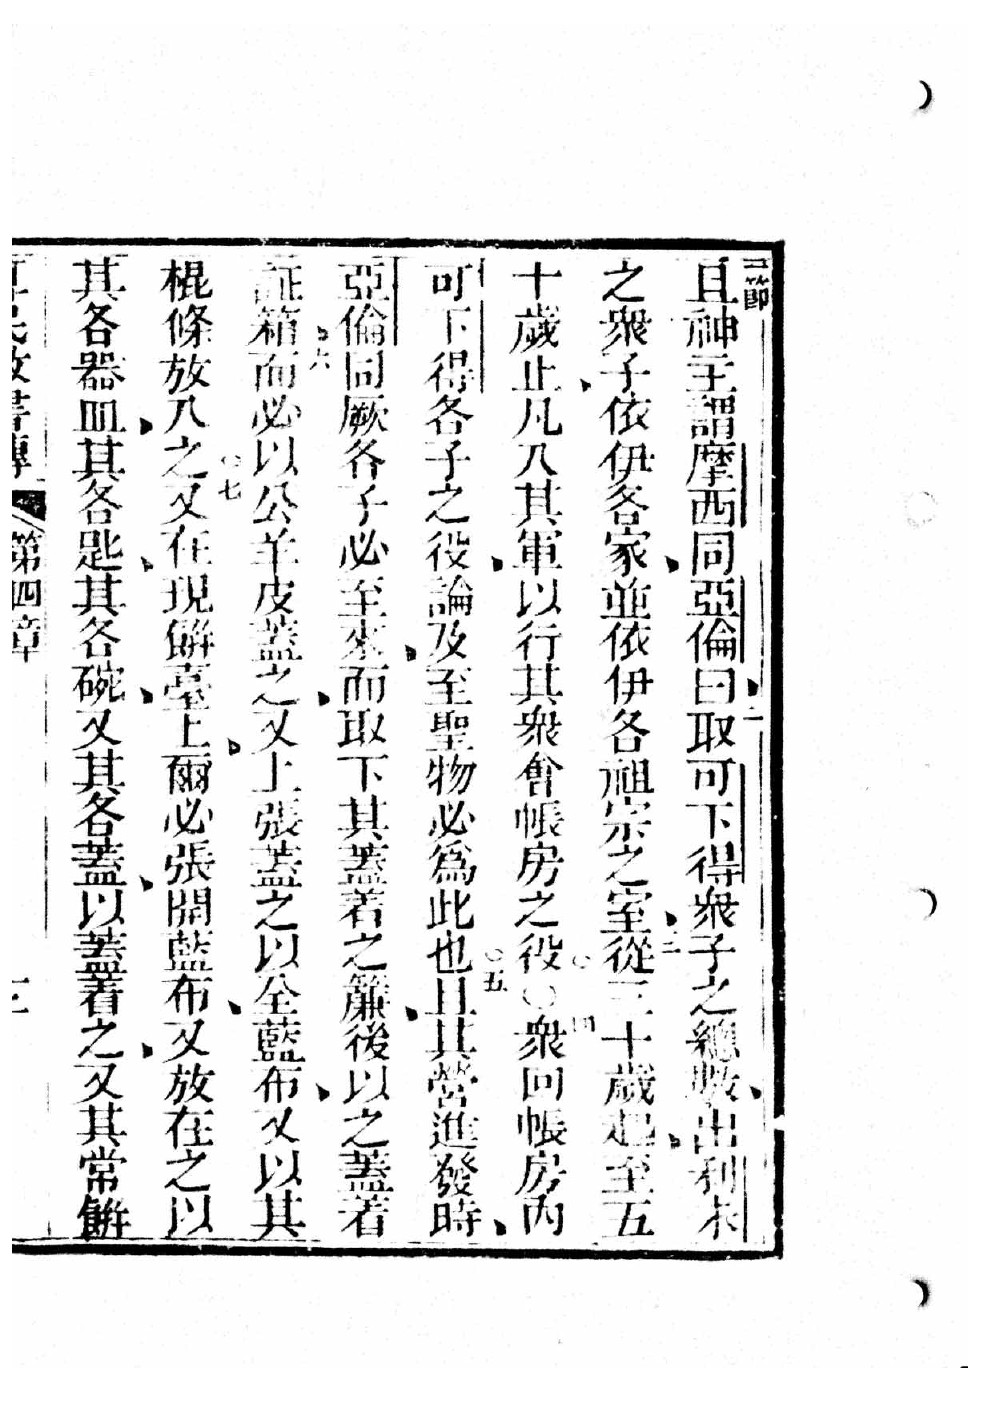 一節
且神主謂摩西同亞倫曰二取可下得衆子之總數出利未
之衆子依伊各家並依伊各祖宗之室三從三十歲起至五
十歲止凡入其軍以行其衆會帳房之役○四衆回帳房內
可下得各子之役論及至聖物必爲此也○五且其營進發時
亞倫同厥各子必至來而取下其蓋着之簾後以之蓋着
証箱六而必以公羊皮蓋之又上張蓋之以全藍布又以其
棍條放入之○七又在現餅臺上爾必張開藍布又放在之以
其各器皿其各匙其各碗又其各蓋以蓋着之又其常餅
民數書傳 第四章